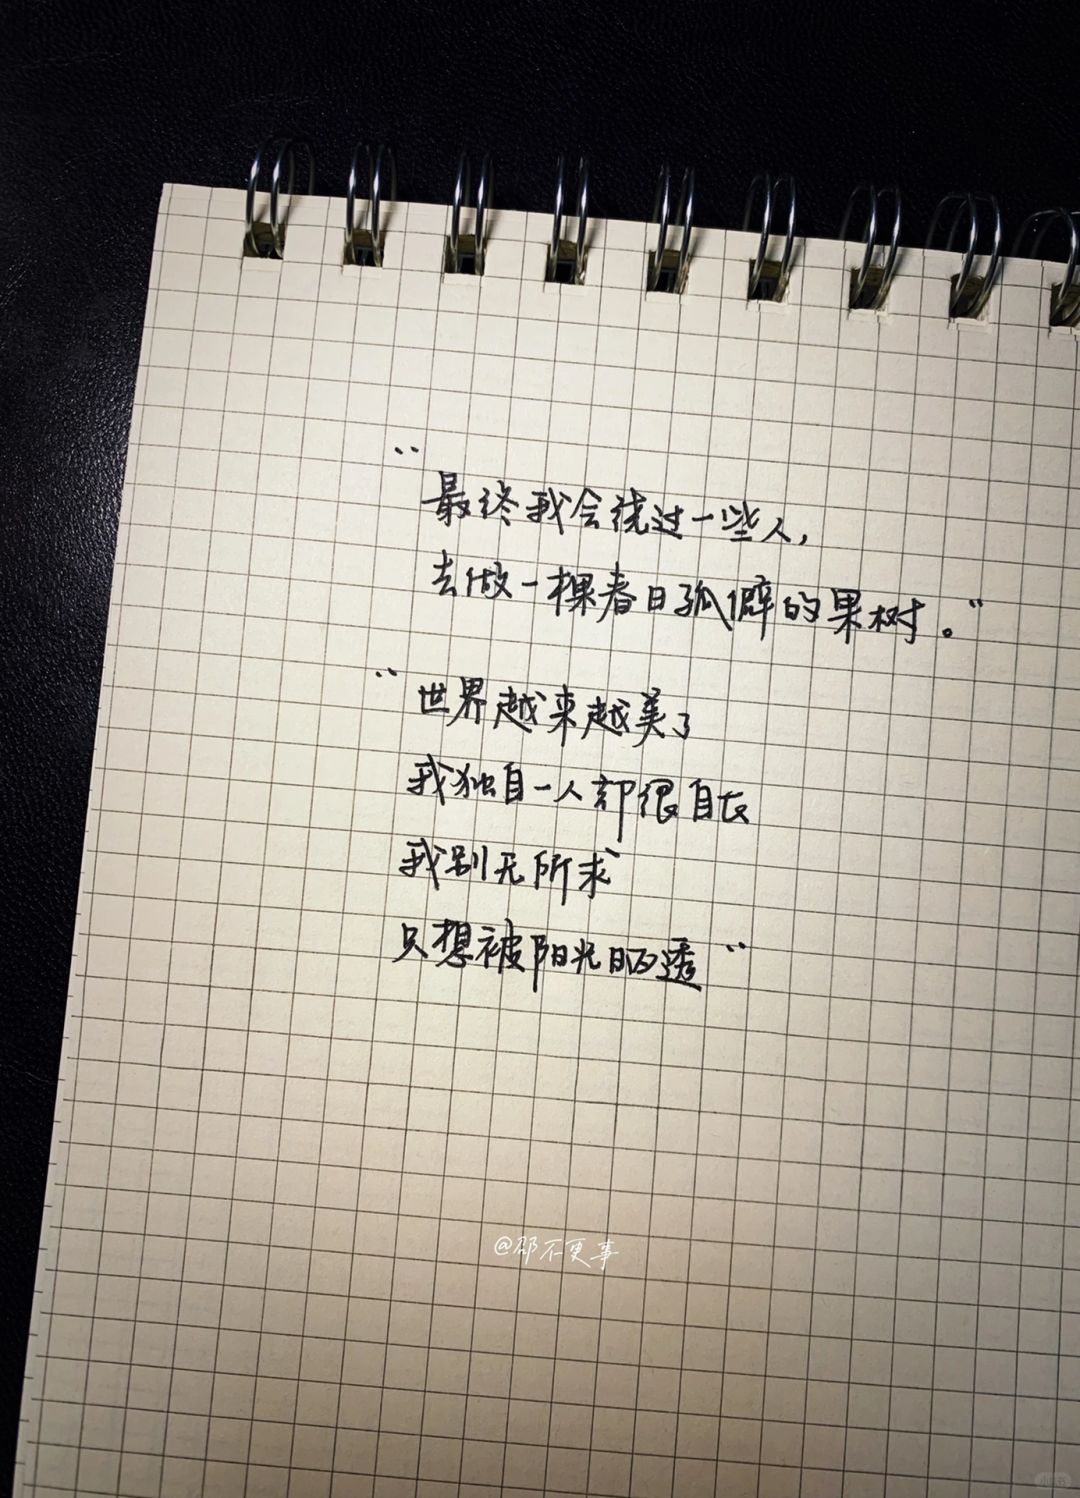 “最终我会绕过一些人，
去做一棵春日孤僻的果树。”
“世界越来越美了
我独自一人都很自在
我别无所求
只想被阳光晒透”
@邵不更事